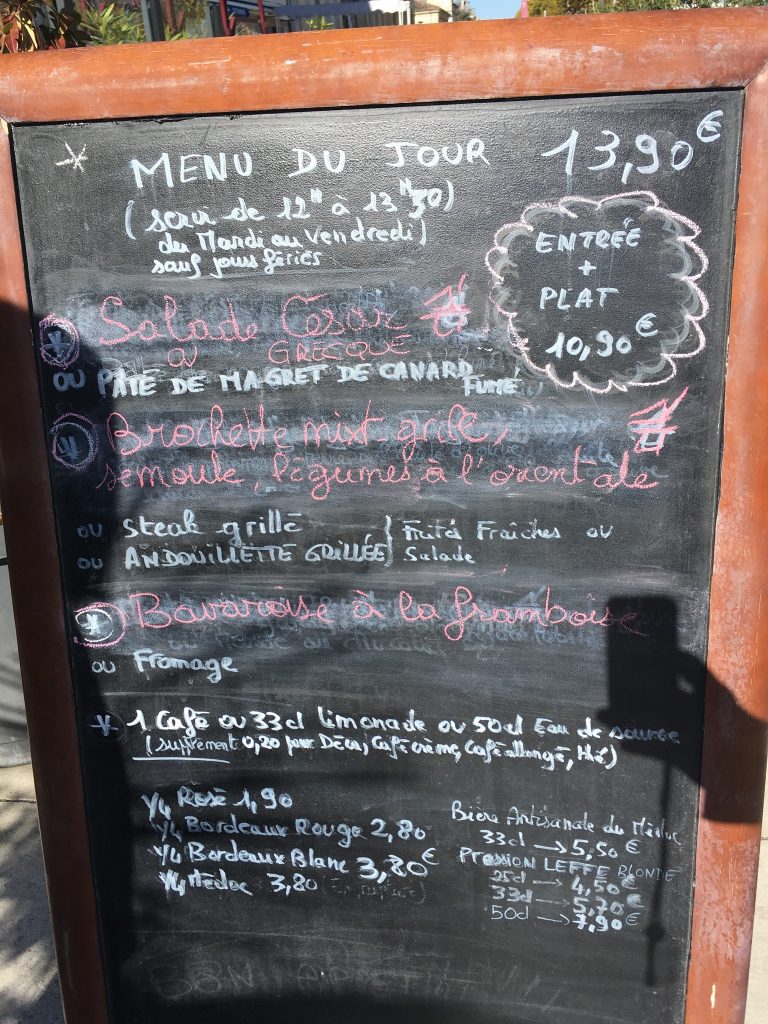 * MENU DU JOUR 13,90€
(servi de 12H à 13H30)
du Mardi au Vendredi)
sauf jours fériés
ENTRÉE
+
PLAT
10,90€
* Salade César
ou GRECQUE
OU PATÉ DE MAGRET DE CANARD FUMÉ
* Brochette mixt-grill,
semoule, légumes à l'orientale
ou Steak grillé
ou ANDOUILLETTE GRILLÉE } Frites Fraîches ou
Salade
* Bavaroise à la framboise
ou Fromage
* 1 Café ou 33cl limonade ou 50cl Eau de source
(supplément 0,20 pour Déca, Café crème, Café allongé, thé)
1/4 Rosé 1,90
1/4 Bordeaux Rouge 2,80
1/4 Bordeaux Blanc 3,80€
1/4 Médoc 3,80 (En rupture)
Bière Artisanale du Médoc
33cl → 5,50€
PRESSION LEFFE BLONDE
25cl → 4,50€
33cl → 5,70€
50cl → 7,90€
BON APPETIT